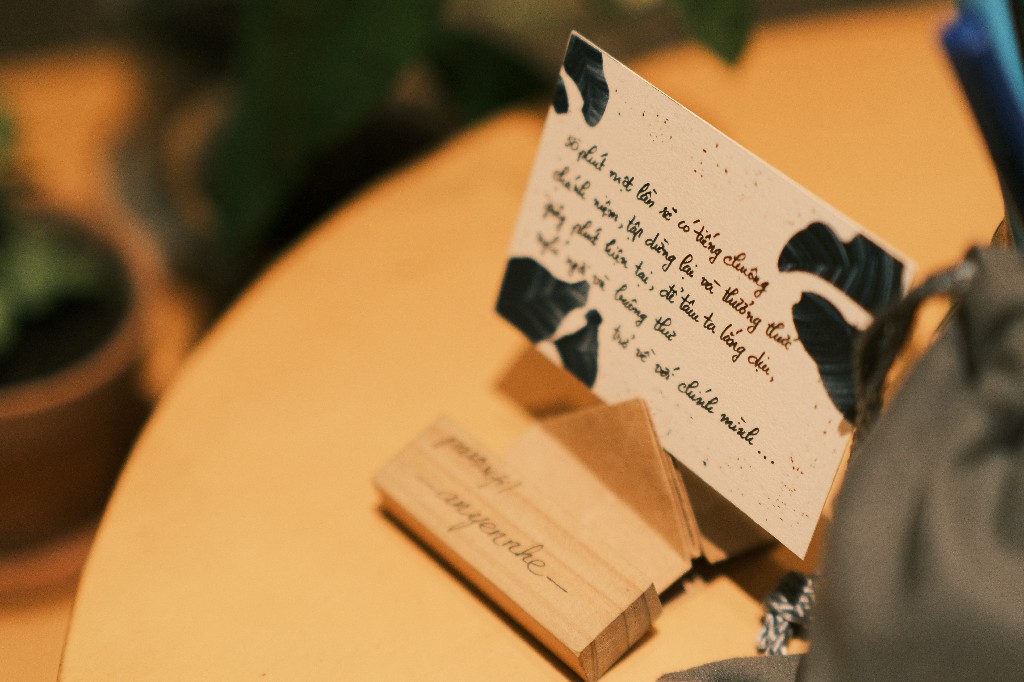 30 phút một lần sẽ có tiếng chuông
chánh niệm, tập dừng lại và thưởng thức
giây phút hiện tại, để tâm ta lắng dịu,
nghỉ ngơi và buông thư
trở về với chính mình...
anyennhe